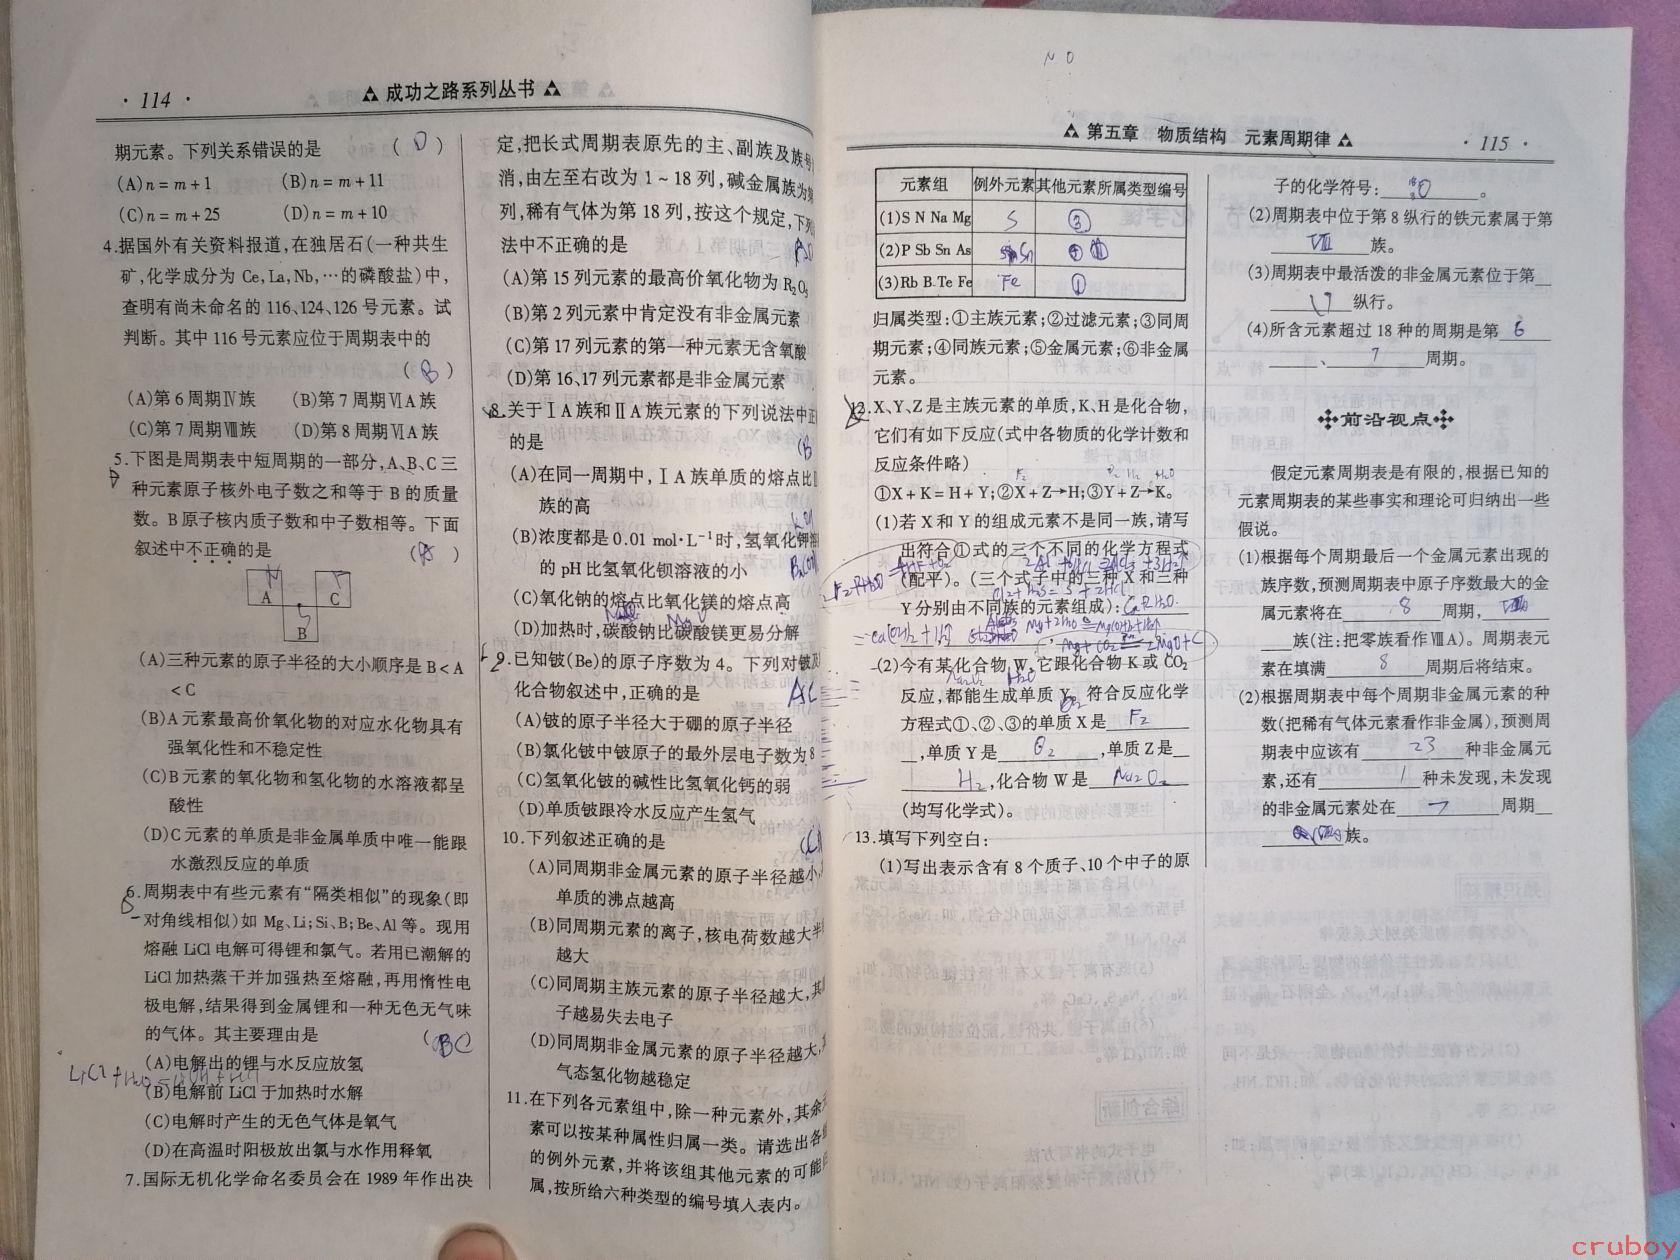 · 114 ·
成功之路系列丛书
期元素。下列关系错误的是 ( D )
(A)n=m+1 (B)n=m+11
(C)n=m+25 (D)n=m+10
4.据国外有关资料报道,在独居石(一种共生
矿,化学成分为 Ce,La,Nb,…的磷酸盐)中,
查明有尚未命名的 116、124、126 号元素。试
判断。其中 116 号元素应位于周期表中的
( B )
(A)第 6 周期Ⅳ族 (B)第 7 周期ⅥA 族
(C)第 7 周期Ⅷ族 (D)第 8 周期ⅥA 族
5.下图是周期表中短周期的一部分,A、B、C 三
种元素原子核外电子数之和等于 B 的质量
数。B 原子核内质子数和中子数相等。下面
叙述中不正确的是 ( A )
N F
A C
B
(A)三种元素的原子半径的大小顺序是 B<A
<C
(B)A 元素最高价氧化物的对应水化物具有
强氧化性和不稳定性
(C)B 元素的氧化物和氢化物的水溶液都呈
酸性
(D)C 元素的单质是非金属单质中唯一能跟
水激烈反应的单质
6.周期表中有些元素有“隔类相似”的现象(即
对角线相似)如 Mg、Li;Si、B;Be、Al 等。现用
熔融 LiCl 电解可得锂和氯气。若用已潮解的
LiCl 加热蒸干并加强热至熔融,再用惰性电
极电解,结果得到金属锂和一种无色无气味
的气体。其主要理由是 ( BC
(A)电解出的锂与水反应放氢
(B)电解前 LiCl 于加热时水解
(C)电解时产生的无色气体是氧气
(D)在高温时阳极放出氯与水作用释氧
7.国际无机化学命名委员会在 1989 年作出决
定,把长式周期表原先的主、副族及族号
消,由左至右改为 1~18 列,碱金属族为第
列,稀有气体为第 18 列,按这个规定,下列
法中不正确的是
(A)第 15 列元素的最高价氧化物为 R₂O₅
(B)第 2 列元素中肯定没有非金属元素
(C)第 17 列元素的第一种元素无含氧酸
(D)第 16、17 列元素都是非金属元素
8.关于ⅠA 族和ⅡA 族元素的下列说法中正
的是 (B
(A)在同一周期中,ⅠA 族单质的熔点比Ⅱ
族的高
(B)浓度都是 0.01 mol·L⁻¹时,氢氧化钾溶
的 pH 比氢氧化钡溶液的小
(C)氧化钠的熔点比氧化镁的熔点高
(D)加热时,碳酸钠比碳酸镁更易分解
9.已知铍(Be)的原子序数为 4。下列对铍及
化合物叙述中,正确的是 AC
(A)铍的原子半径大于硼的原子半径
(B)氯化铍中铍原子的最外层电子数为 8
(C)氢氧化铍的碱性比氢氧化钙的弱
(D)单质铍跟冷水反应产生氢气
10.下列叙述正确的是
(A)同周期非金属元素的原子半径越小,
单质的沸点越高
(B)同周期元素的离子,核电荷数越大半
越大
(C)同周期主族元素的原子半径越大,其
子越易失去电子
(D)同周期非金属元素的原子半径越大,
气态氢化物越稳定
11.在下列各元素组中,除一种元素外,其余
素可以按某种属性归属一类。请选出各
的例外元素,并将该组其他元素的可能
属,按所给六种类型的编号填人表内。
N O
第五章 物质结构 元素周期律
· 115 ·
元素组 例外元素 其他元素所属类型编号
(1)S N Na Mg S ③
(2)P Sb Sn As Sn ④
(3)Rb B Te Fe Fe ①
归属类型:①主族元素;②过滤元素;③同周
期元素;④同族元素;⑤金属元素;⑥非金属
元素。
12.X、Y、Z 是主族元素的单质,K、H 是化合物,
它们有如下反应(式中各物质的化学计数和
反应条件略)
F₂ O₂ H₂ H₂O
①X+K=H+Y;②X+Z→H;③Y+Z→K。
(1)若 X 和 Y 的组成元素不是同一族,请写
出符合①式的三个不同的化学方程式
(配平)。(三个式子中的三种 X 和三种
Y 分别由不同族的元素组成):
Mg+CO₂=2MgO+C
(2)今有某化合物 W,它跟化合物 K 或 CO₂
Na₂O₂ H₂O
反应,都能生成单质 Y。符合反应化学
方程式①、②、③的单质 X 是 F₂
,单质 Y 是 O₂ ,单质 Z 是
H₂ ,化合物 W 是 Na₂O₂
(均写化学式)。
13.填写下列空白:
(1)写出表示含有 8 个质子、10 个中子的原
子的化学符号: ¹⁸₈O 。
(2)周期表中位于第 8 纵行的铁元素属于第
Ⅷ 族。
(3)周期表中最活泼的非金属元素位于第
17 纵行。
(4)所含元素超过 18 种的周期是第 6
、 7 周期。
前沿视点
假定元素周期表是有限的,根据已知的
元素周期表的某些事实和理论可归纳出一些
假说。
(1)根据每个周期最后一个金属元素出现的
族序数,预测周期表中原子序数最大的金
属元素将在 8 周期,
族(注:把零族看作ⅧA)。周期表元
素在填满 8 周期后将结束。
(2)根据周期表中每个周期非金属元素的种
数(把稀有气体元素看作非金属),预测周
期表中应该有 23 种非金属元
素,还有 1 种未发现,未发现
的非金属元素处在 周期
族。
cruboy